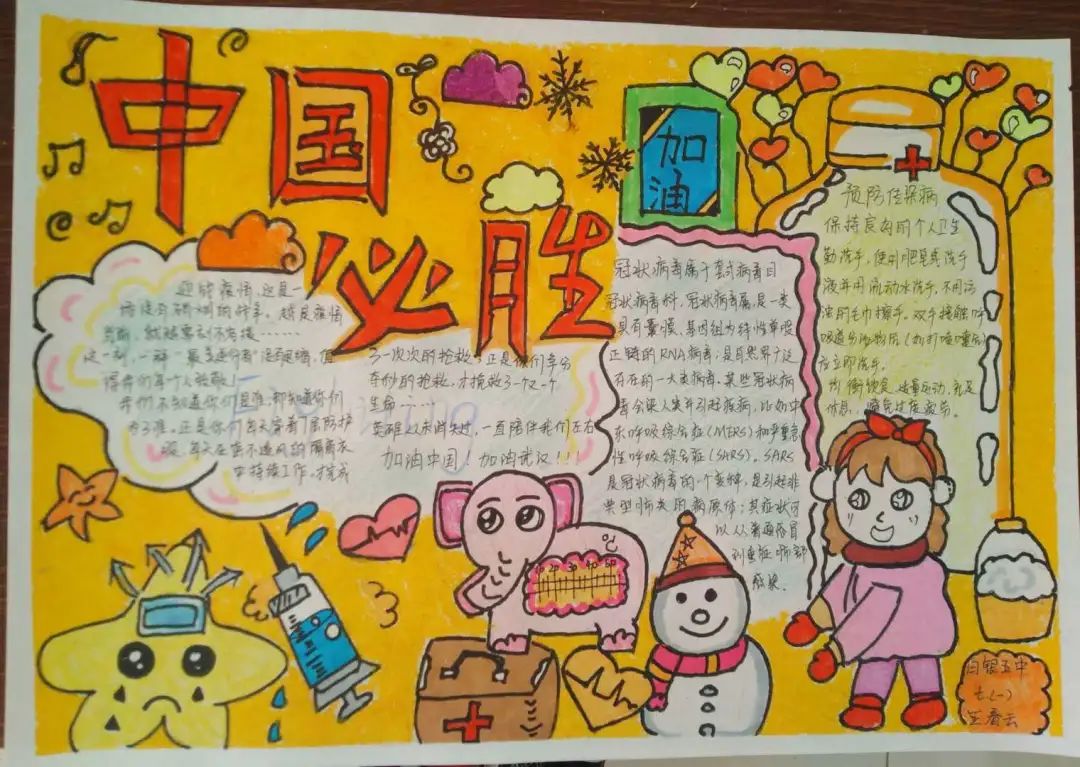 中国
必胜
加油
迎战疫情,这是一
场没有硝烟的战争。越是疫情
当前,就越要刻不容缓……
这一刻,一群"最美逆行者"
得我们每个人致敬!
我们不知道你们是谁,却知道你们
为了谁。正是你们每天穿着厚厚防护
服,每天在密不透风的隔离衣
中持续工作。才完成
了一次次的抢救;正是你们争分
夺秒的抢救,才挽救了一个又一个
生命……
英雄从未消失过,一直陪伴我们左右
加油中国!加油武汉!!!
冠状病毒属于套式病毒目
冠状病毒科,冠状病毒属是一类
具有囊膜、基因组为线性单股
正链的RNA病毒,是自然界广泛
存在的一大类病毒。某些冠状病
毒会染人类并引起疾病,比如中
东呼吸综合症(MERS)和严重急
性呼吸综合症(SARS)。SARS
是冠状病毒的一个变种,是引起非
典型肺炎的病原体;其症状可
以从普通感冒
到重症肺部
感染。
预防传染病
保持良好的个人卫生
勤洗手,使用肥皂或洗手
液并用流动水洗手,不用污
浊的毛巾擦手。双手接触呼
吸道分泌物后(如打喷嚏后)
应立即洗手。
均衡饮食、适量运动、充足
休息,避免过度疲劳。
℃
10 20 30 40 50
白银五中
七(一)